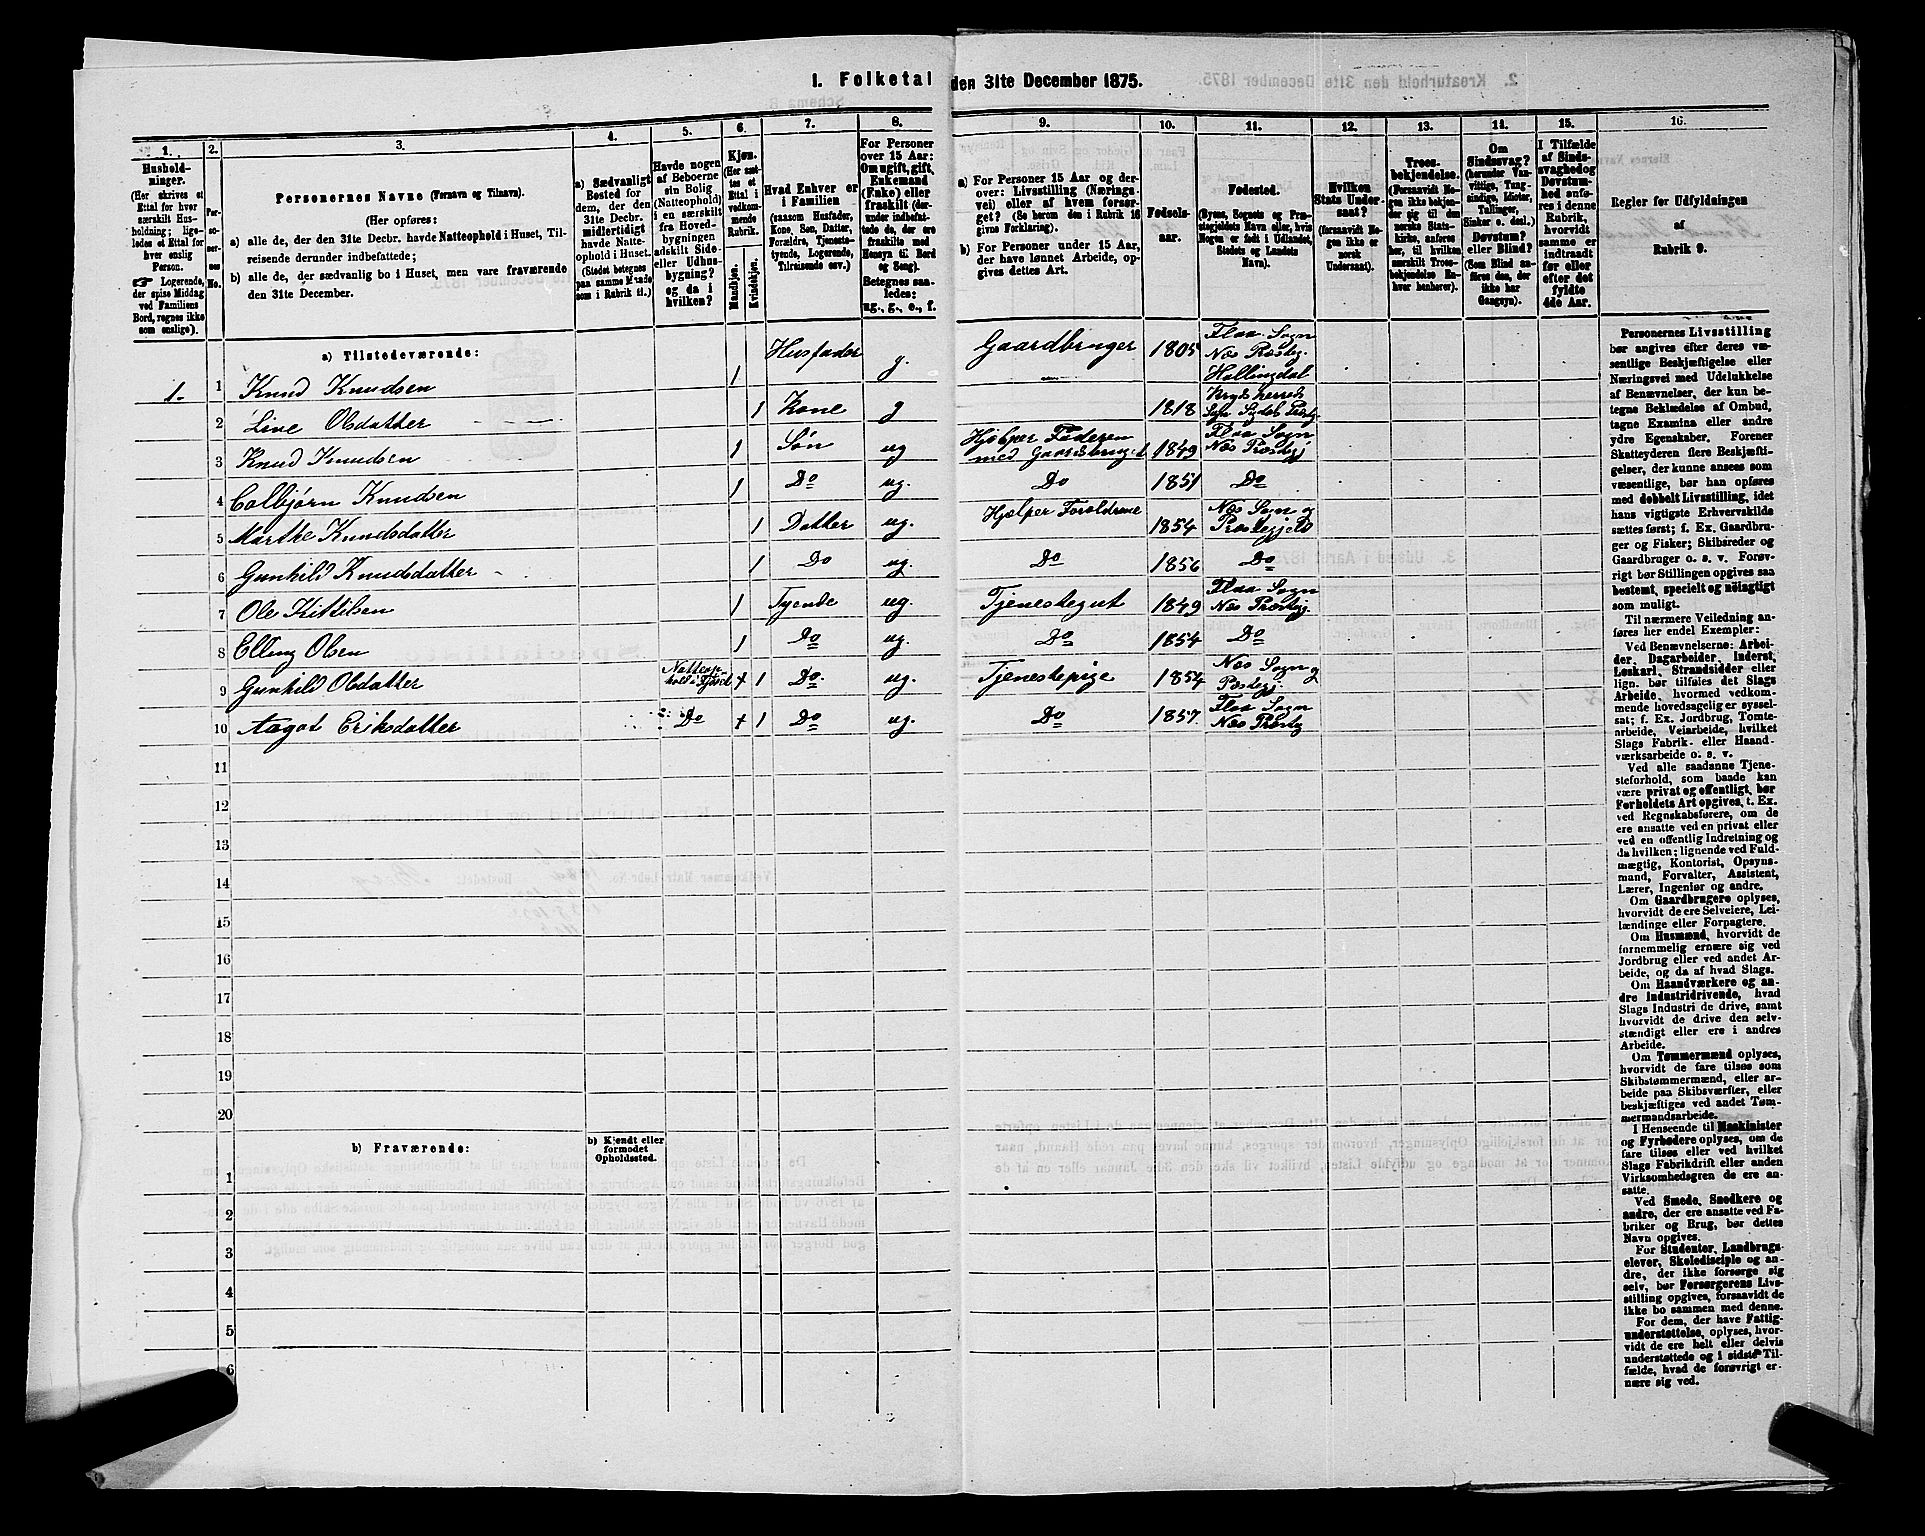 1. Folketal den 31te December 1875.
1.
Hushold-
ninger.
(Her skrives et
Ettal for hver
særskilt Hus-
holdning; lige-
ledes et Ettal for
hver enslig
Person.
☞ Logerende,
der spise Middag
ved Familiens
Bord, regnes ikke
som enslige).
2.
Per-
so-
ner-
nes
No.
3.
Personernes Navne (Fornavn og Tilnavn).
(Her opføres:
a) alle de, der den 31te Decbr. havde Natteophold i Huset, Til-
reisende derunder indbefattede;
b) alle de, der sædvanlig bo i Huset, men vare fraværende
den 31te December.
4.
a) Sædvanligt
Bosted for
dem, der den
31te Decbr.
midlertidigt
havde Natte-
ophold i Huset.
(Stedet betegnes
paa samme Maade
som i Rubrik 11.)
5.
Havde nogen
af Beboerne
sin Bolig
(Natteophold)
i en særskilt
fra Hoved-
bygningen
adskilt Side-
eller Udhus-
bygning?
og da i
hvilken?
6.
Kjøn.
(Her sæt-
tes et
Ettal i
vedkom-
mende
Rubrik.
Mandkjøn.
Kvindekjøn.
7.
Hvad Enhver er
i Familien
(saasom Husfader,
Kone, Søn, Datter,
Forældre, Tjeneste-
tyende, Logerende,
Tilreisende osv.)
8.
For Personer
over 15 Aar:
Om ugift, gift,
Enkemand
(Enke) eller
fraskilt (der-
under indbefat-
tede de, der ere
fraskilte med
Hensyn til Bord
og Seng).
Betegnes saa-
ledes:
ug., g., e., f.
9.
a) For Personer 15 Aar og der-
over: Livsstilling (Nærings-
vei) eller af hvem forsør-
get? (Se herom den i Rubrik 16
givne Forklaring).
b) For Personer under 15 Aar,
der have lønnet Arbeide, op-
gives dettes Art.
10.
Fødsels-
aar.
11.
Fødested.
(Byens, Sognets og Præ-
stegjeldets Navn eller, hvis
Nogen er født i Udlandet,
Stedets og Landets
Navn).
12.
Hvilken
Stats Under-
saat?
(forsaavidt No-
gen ikke er
norsk
Undersaat).
13.
Troes-
bekjendelse.
(Forsaavidt No-
gen ikke bekjen-
der sig til den
norske Stats-
kirke, anføres
her, til hvilken
særskilt Troes-
bekjendelse En-
hver henhører).
14.
Om
Sindssvag?
(herunder Van-
vittige, Tung-
sindige, Idioter,
Tullinger,
Sinker o. desl.)
Døvstum?
eller Blind?
(Som Blind an-
føres den, der
ikke har
Gangsyn).
15.
I Tilfælde
af Sinds-
svaghedog
Døvstum-
hed anfø-
res i denne
Rubrik,
hvorvidt
samme er
indtraadt
før eller
efter det
fyldte
4de Aar.
16.
Regler for Udfyldningen
af
Rubrik 9.
a) Tilstedeværende:
1. 1 Knud Knudsen 1 Husfader g. Gaardbruger 1805 Flaa Sogn Næs Præstegj. Hallingdal
2 Live Olsdatter 1 Kone g 1818 Krydsherred Sogn Sigdals Præstgj
3 Knud Knudsen 1 Søn ug Hjælper Faderen med Gaardsbruget 1849 Flaa Sogn Næs Præstegj
4 Colbjørn Knudsen 1 Do ug. Do 1851 Do
5 Marthe Knudsdatter 1 Datter ug. Hjælper Forældrene 1854 Næs Sogn og Præstegjeld
6 Gunhild Knudsdatter 1 Do ug. Do 1856 Do
7 Ole Kittilsen 1 Tyende ug. Tjenestegut 1849 Flaa Sogn Næs Præstegj.
8 Elling Olsen 1 Do ug. Do 1854 Do
9 Gunhild Olsdatter Natteophold i Fjøset + 1 Do. ug. Tjenestepige 1854 Næs Sogn og Præstegj.
10 Aagot Eriksdatter Do + 1 Do ug. Do 1857 Flaa Sogn Næs Præstgj
11
12
13
14
15
16
17
18
19
20
b) Fraværende:
b) Kjendt eller
formodet
Opholdssted.
1
2
3
4
5
6
Personernes Livsstilling
bør angives efter deres væ-
sentlige Beskjæftigelse eller
Næringsvei med Udelukkelse
af Benævnelser, der kun be-
tegne Beklædelse af Ombud,
tagne Examina eller andre
ydre Egenskaber. Forener
Skatteyderen flere Beskjæfti-
gelser, der kunne ansees som
væsentlige, bør han opføres
med dobbelt Livsstilling, idet
hans vigtigste Erhvervskilde
sættes først; f. Ex. Gaardbru-
ger og Fisker; Skibsreder og
Gaardbruger o. s. v. Forøv-
rigt bør Stillingen opgives saa
bestemt, specielt og nøiagtigt
som muligt.
Til nærmere Veiledning an-
føres her endel Exempler:
Ved Benævnelserne: Arbei-
der, Dagarbeider, Inderst,
Løskarl, Strandsidder eller
lign. bør tilføies det Slags
Arbeide, hvormed vedkom-
mende hovedsagelig er syssel-
sat; f. Ex. Jordbrug, Tomte-
arbeide, Veiarbeide, hvilket
Slags Fabrik- eller Haand-
værksarbeide o. s. v.
Ved alle saadanne Tjene-
steforhold, som baade kan
være privat og offentligt, bør
Forholdets Art opgives, t. Ex.
ved Regnskabsførere, om de
ere ansatte ved en privat eller
ved en offentlig Indretning og
da hvilken; lignende ved Fuld-
mægtig, Kontorist, Opsyns-
mand, Forvalter, Assistent,
Lærer, Ingeniør og andre.
Om Gaardbrugere oplyses,
hvorvidt de ere Selveiere, Lei-
lændinge eller Forpagtere.
Om Husmænd, hvorvidt de
fornemmelig ernære sig ved
Jordbrug eller ved andet Ar-
beide, og da af hvad Slags.
Om Haandværkere og an-
dre Industridrivende, hvad
Slags Industri de drive, samt
hvorvidt de drive den selv-
stændigt eller ere i andres
Arbeide.
Om Tømmermænd oplyses,
hvorvidt de fare tilsøs som
Skibstømmermænd, eller ar-
beide paa Skibsværfter, eller
beskjæftiges ved andet Tøm-
mermandsarbeide.
I Henseende til Maskinister
og Fyrbødere oplyses, om de
fare tilsøs eller ved hvilket
Slags Fabrikdrift eller anden
Virksomhedsgren de ere an-
satte.
Ved Smede, Snedkere og
andre, der ere ansatte ved Fa-
briker og Brug, bør dettes
Navn opgives.
For Studenter, Landbrugs-
elever, Skoledisciple og an-
dre, der ikke forsørge sig
selv, bør Forsørgerens Livs-
stilling opgives, forsaavidt de
ikke bo sammen med denne.
For dem, der have Fattig-
understøttelse, oplyses, hvor-
vidt de ere helt eller delvis
understøttede og i sidste Til-
fælde, hvad de forøvrigt er-
nære sig ved.